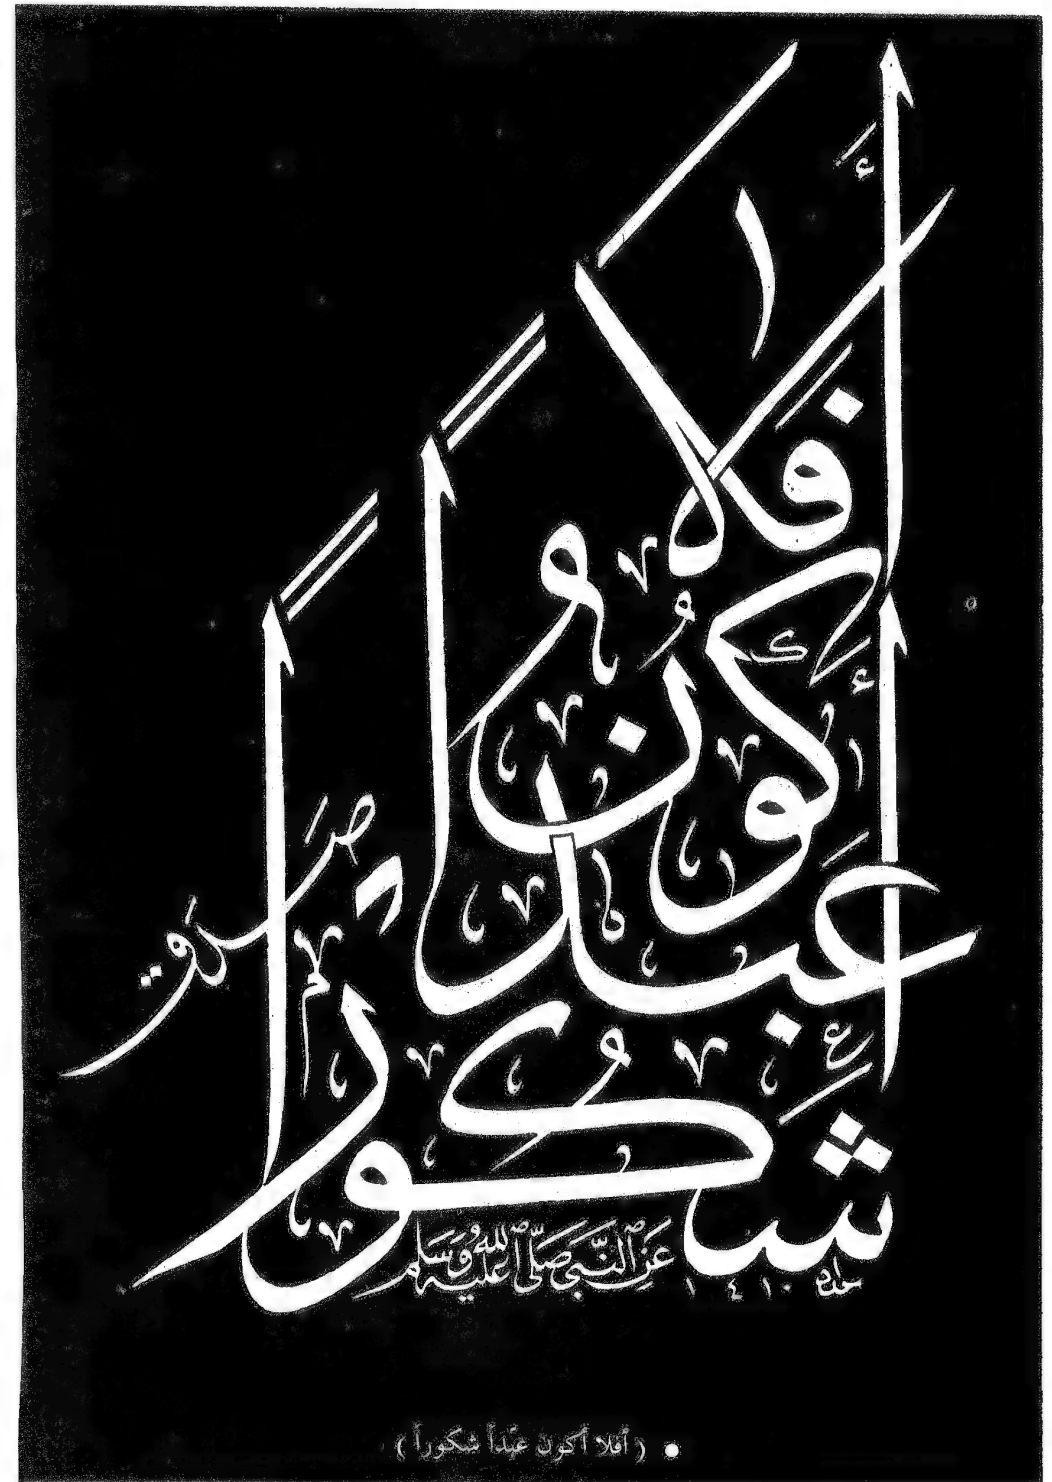 أَفَلَا
أَكُونُ
عَبْداً
شَكُوراً
صَدَقَ
عَنِ النَّبِيِّ صَلَّى اللهُ عَلَيْهِ وَسَلَّم
١٤١٠
• ( أفلا أكون عبداً شكوراً )